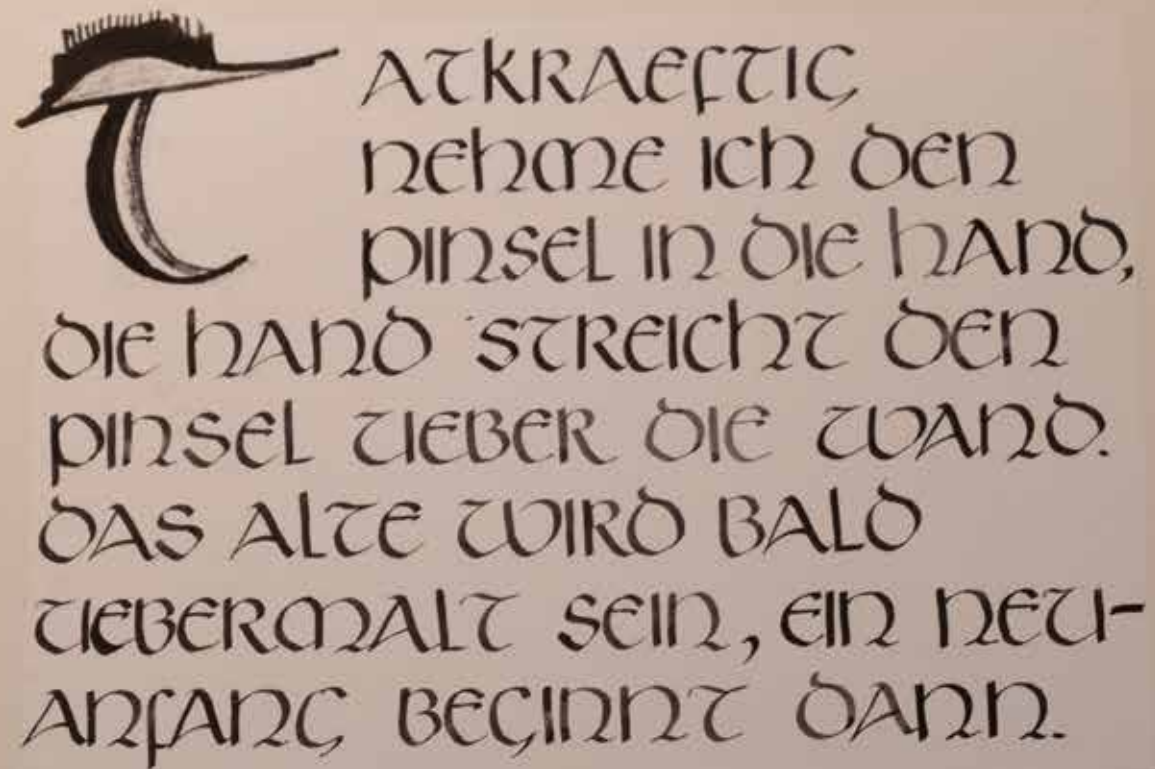 TATKRAEFTIG
NEHME ICH DEN
PINSEL IN DIE HAND,
DIE HAND STREICHT DEN
PINSEL UEBER DIE WAND.
DAS ALTE WIRD BALD
UEBERMALT SEIN, EIN NEU-
ANFANG BEGINNT DANN.